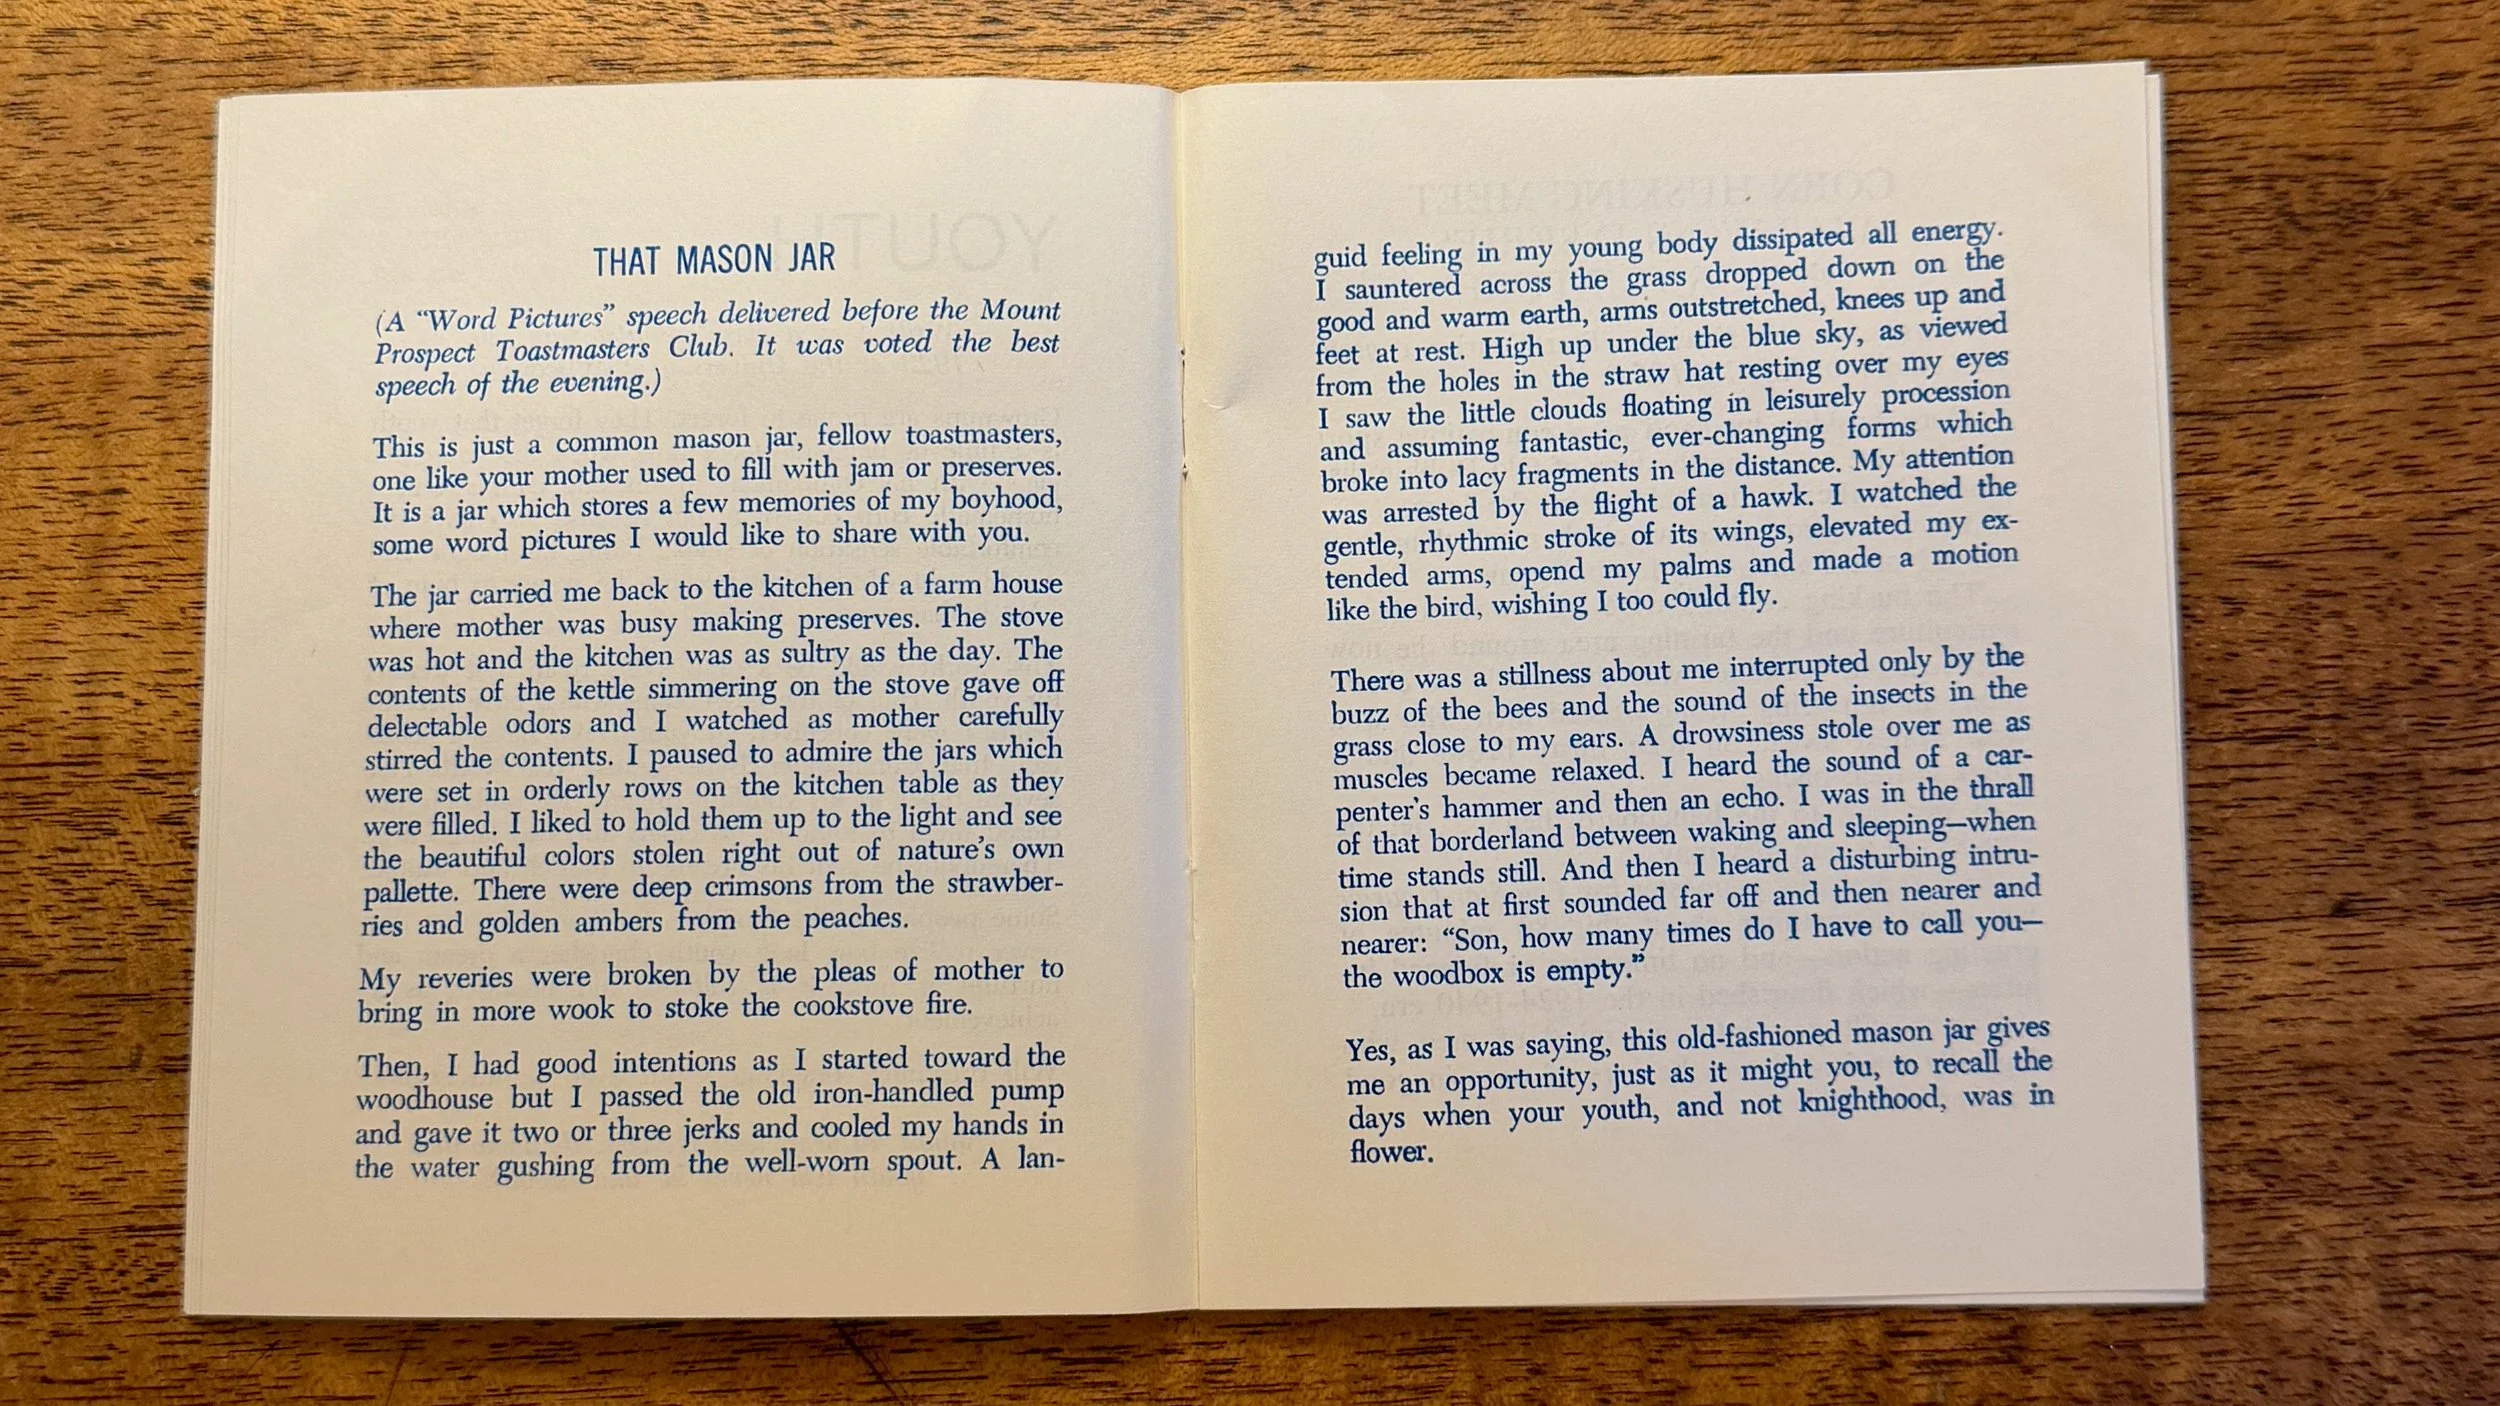 THAT MASON JAR
(A “Word Pictures” speech delivered before the Mount
Prospect Toastmasters Club. It was voted the best
speech of the evening.)
This is just a common mason jar, fellow toastmasters,
one like your mother used to fill with jam or preserves.
It is a jar which stores a few memories of my boyhood,
some word pictures I would like to share with you.
The jar carried me back to the kitchen of a farm house
where mother was busy making preserves. The stove
was hot and the kitchen was as sultry as the day. The
contents of the kettle simmering on the stove gave off
delectable odors and I watched as mother carefully
stirred the contents. I paused to admire the jars which
were set in orderly rows on the kitchen table as they
were filled. I liked to hold them up to the light and see
the beautiful colors stolen right out of nature’s own
pallette. There were deep crimsons from the strawber-
ries and golden ambers from the peaches.
My reveries were broken by the pleas of mother to
bring in more wook to stoke the cookstove fire.
Then, I had good intentions as I started toward the
woodhouse but I passed the old iron-handled pump
and gave it two or three jerks and cooled my hands in
the water gushing from the well-worn spout. A lan-
guid feeling in my young body dissipated all energy.
I sauntered across the grass dropped down on the
good and warm earth, arms outstretched, knees up and
feet at rest. High up under the blue sky, as viewed
from the holes in the straw hat resting over my eyes
I saw the little clouds floating in leisurely procession
and assuming fantastic, ever-changing forms which
broke into lacy fragments in the distance. My attention
was arrested by the flight of a hawk. I watched the
gentle, rhythmic stroke of its wings, elevated my ex-
tended arms, opend my palms and made a motion
like the bird, wishing I too could fly.
There was a stillness about me interrupted only by the
buzz of the bees and the sound of the insects in the
grass close to my ears. A drowsiness stole over me as
muscles became relaxed. I heard the sound of a car-
penter’s hammer and then an echo. I was in the thrall
of that borderland between waking and sleeping—when
time stands still. And then I heard a disturbing intru-
sion that at first sounded far off and then nearer and
nearer: “Son, how many times do I have to call you—
the woodbox is empty.”
Yes, as I was saying, this old-fashioned mason jar gives
me an opportunity, just as it might you, to recall the
days when your youth, and not knighthood, was in
flower.